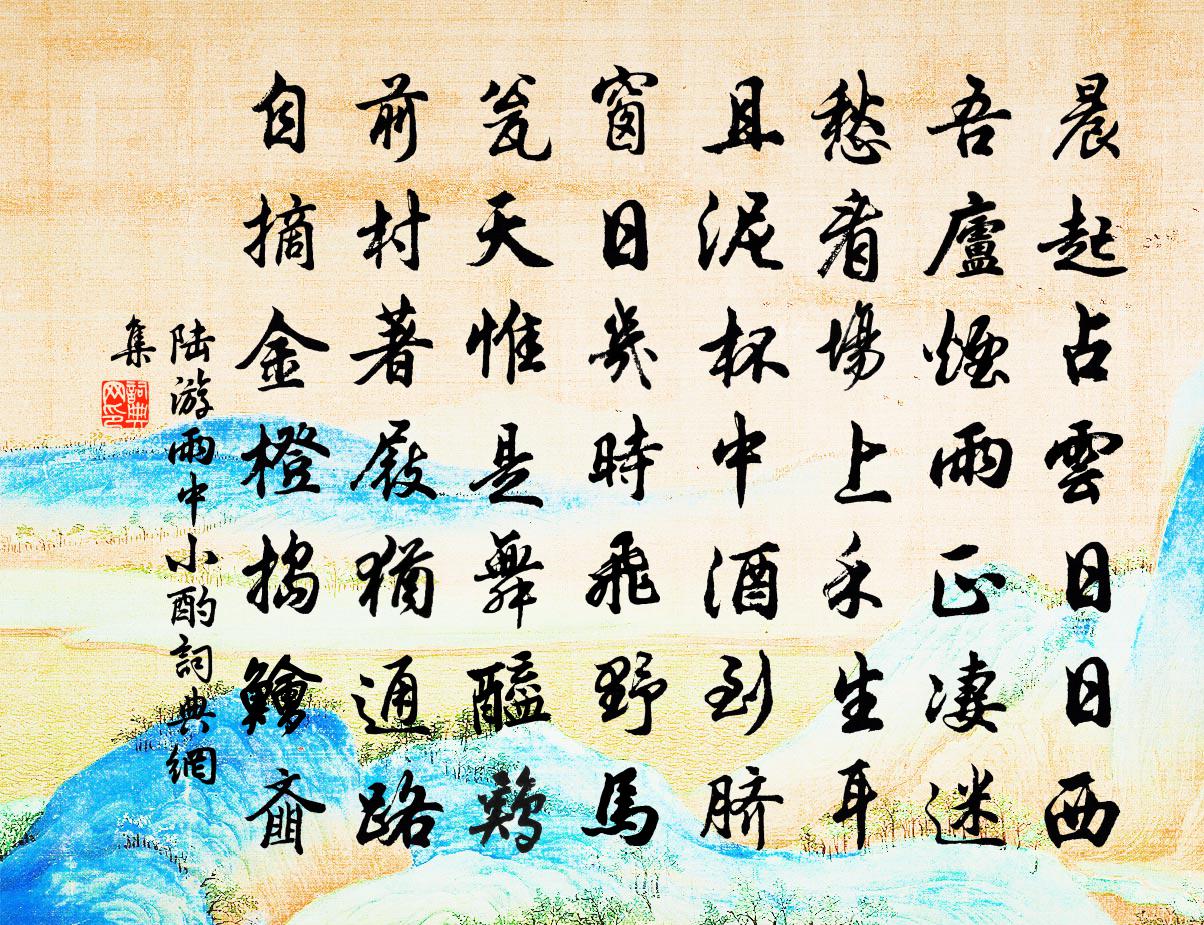 晨起占雲日日西
吾廬煙雨正淒迷
愁看場上禾生耳
且泥杯中酒到臍
窗日幾時飛野馬
瓮天惟是舞醯鷄
前村著屐猶通路
自摘金橙搗鱠齑
陆游雨中小酌詞典網
集
詞典網印